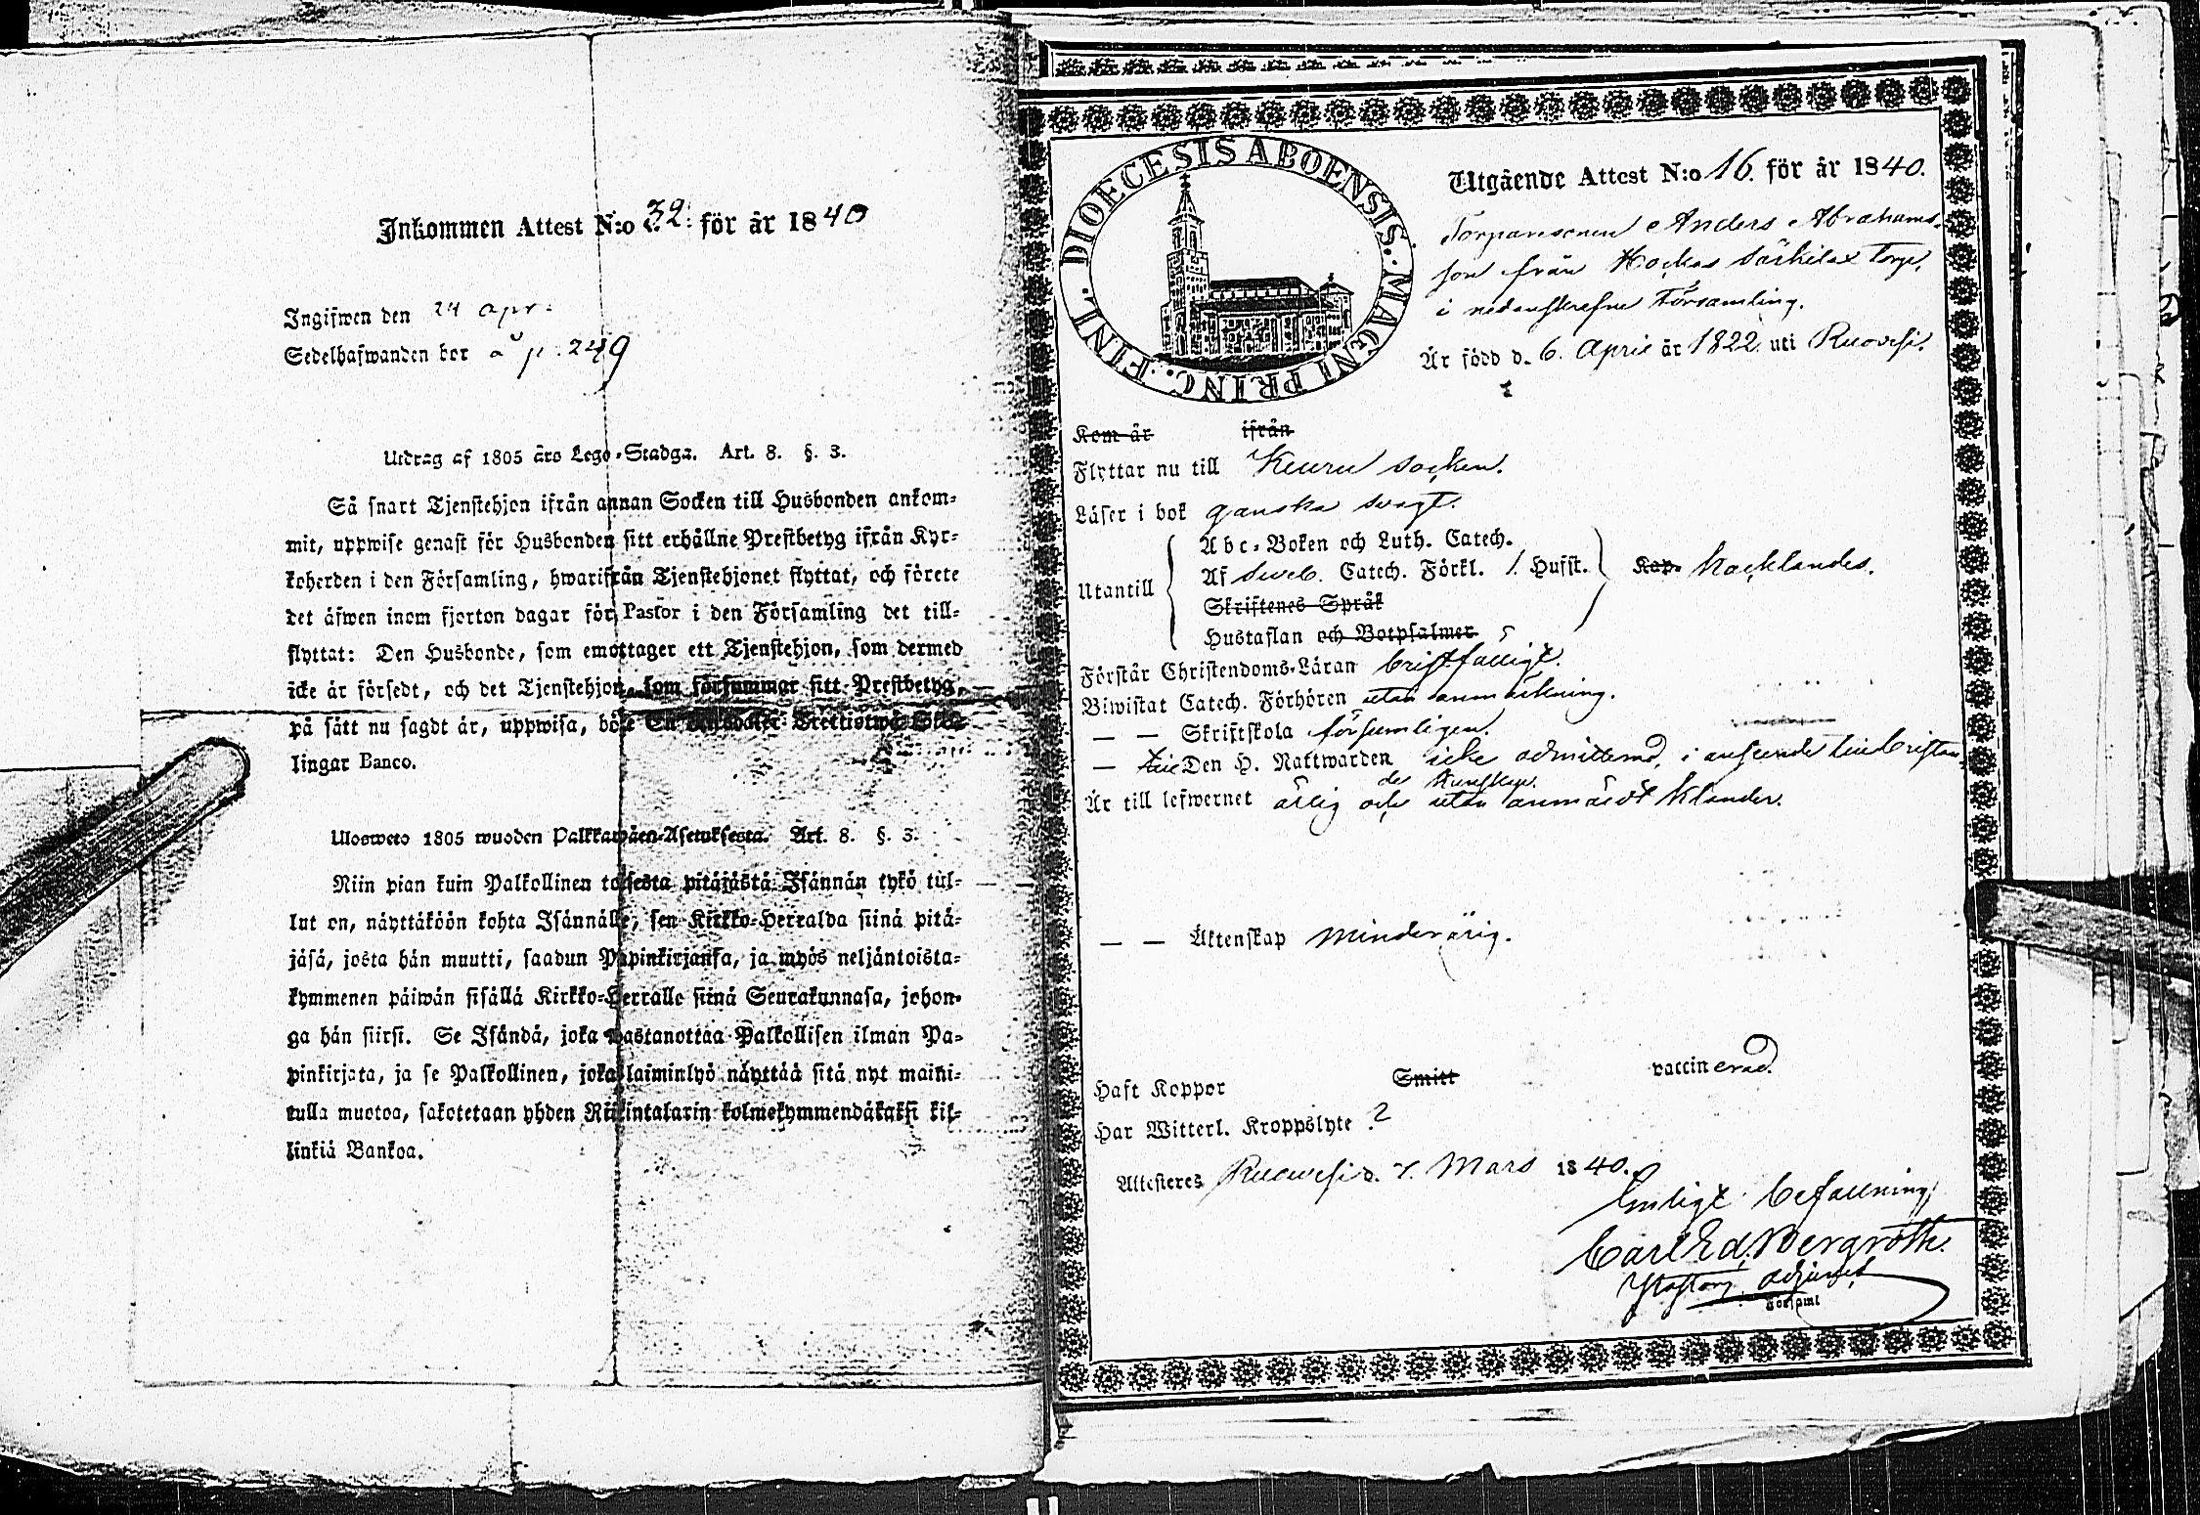 Inkommen Attest N:o 32. för år 1840
Ingifwen den 24 apr.
Sedelhafwanden bor å p. 249
Utdrag af 1805 års Lego-Stadga. Art. 8. §. 3.
Så snart Tjenstehjon ifrån annan Socken till Husbonden ankom-
mit, uppwise genast för Husbonden sitt erhållne Prestbetyg ifrån Kyr-
koherden i den Församling, hwarifrån Tjenstehjonet flyttat, och förete
det äfwen inom fjorton dagar för Pastor i den Församling det till-
flyttat: Den Husbonde, som emottager ett Tjenstehjon, som dermed
icke är försedt, och det Tjenstehjon, som försummar sitt Prestbetyg,
på sätt nu sagdt är, uppwisa, böte En Riksdaler Trettiotwå Skil-
lingar Banco.
Ulosweto 1805 wuoden Palkkawäen-Asetuksesta. Art. 8. §. 3.
Niin pian kuin Palkollinen toisesta pitäjästä Isännän tykö tul-
lut on, näyttäköön kohta Isännälle, sen Kirkko-Herralda siinä pitä-
jäsä, josta hän muutti, saadun Papinkirjansa, ja myös neljäntoista-
kymmenen päiwän sisällä Kirkko-Herralle siinä Seurakunnasa, johon-
ga hän siirsi. Se Isändä, joka wastanottaa Palkollisen ilman Pa-
pinkirjata, ja se Palkollinen, joka laiminlyö näyttää sitä nyt maini-
tulla muotoa, sakotetaan yhden Riikintalarin kolmekymmendäkaksi kil-
linkiä Bankoa.
DIOECESIS ABOENSIS. MAGNI PRINC. FINL.
Utgående Attest N:o 16. för år 1840.
Torparesonen Anders Abrahams-
son från Hockas Särkilax Torp,
i nedanskrefne Församling.
Är född d. 6. April år 1822 uti Ruovesi.
Kom år ifrån
Flyttar nu till Keuru socken.
Läser i bok ganska svagt.
Abc-Boken och Luth. Catech.
Utantill Af Sveb. Catech. Förkl. 1. Hufst. Kap. Stycklandes.
Skriftenes Språk
Hustaflan och Botpsalmer
Förstår Christendoms-Läran bristfälligt.
Biwistat Catech. Förhören utan anmärkning.
— — Skriftskola försumligen.
— till Den H. Nattwarden icke admitterad, i anseende till bristan-
de kunskap.
Är till lefwernet ärlig och utan anmärkt klander.
— — Äktenskap minderårig.
Haft Koppor Smitt vaccinerad.
Har Witterl. Kroppslyte ?
Attesteres Ruovesi d. 7. Mars 1840.
Enligt befallning
Carl Ed. Bergroth.
Pastors adjunct